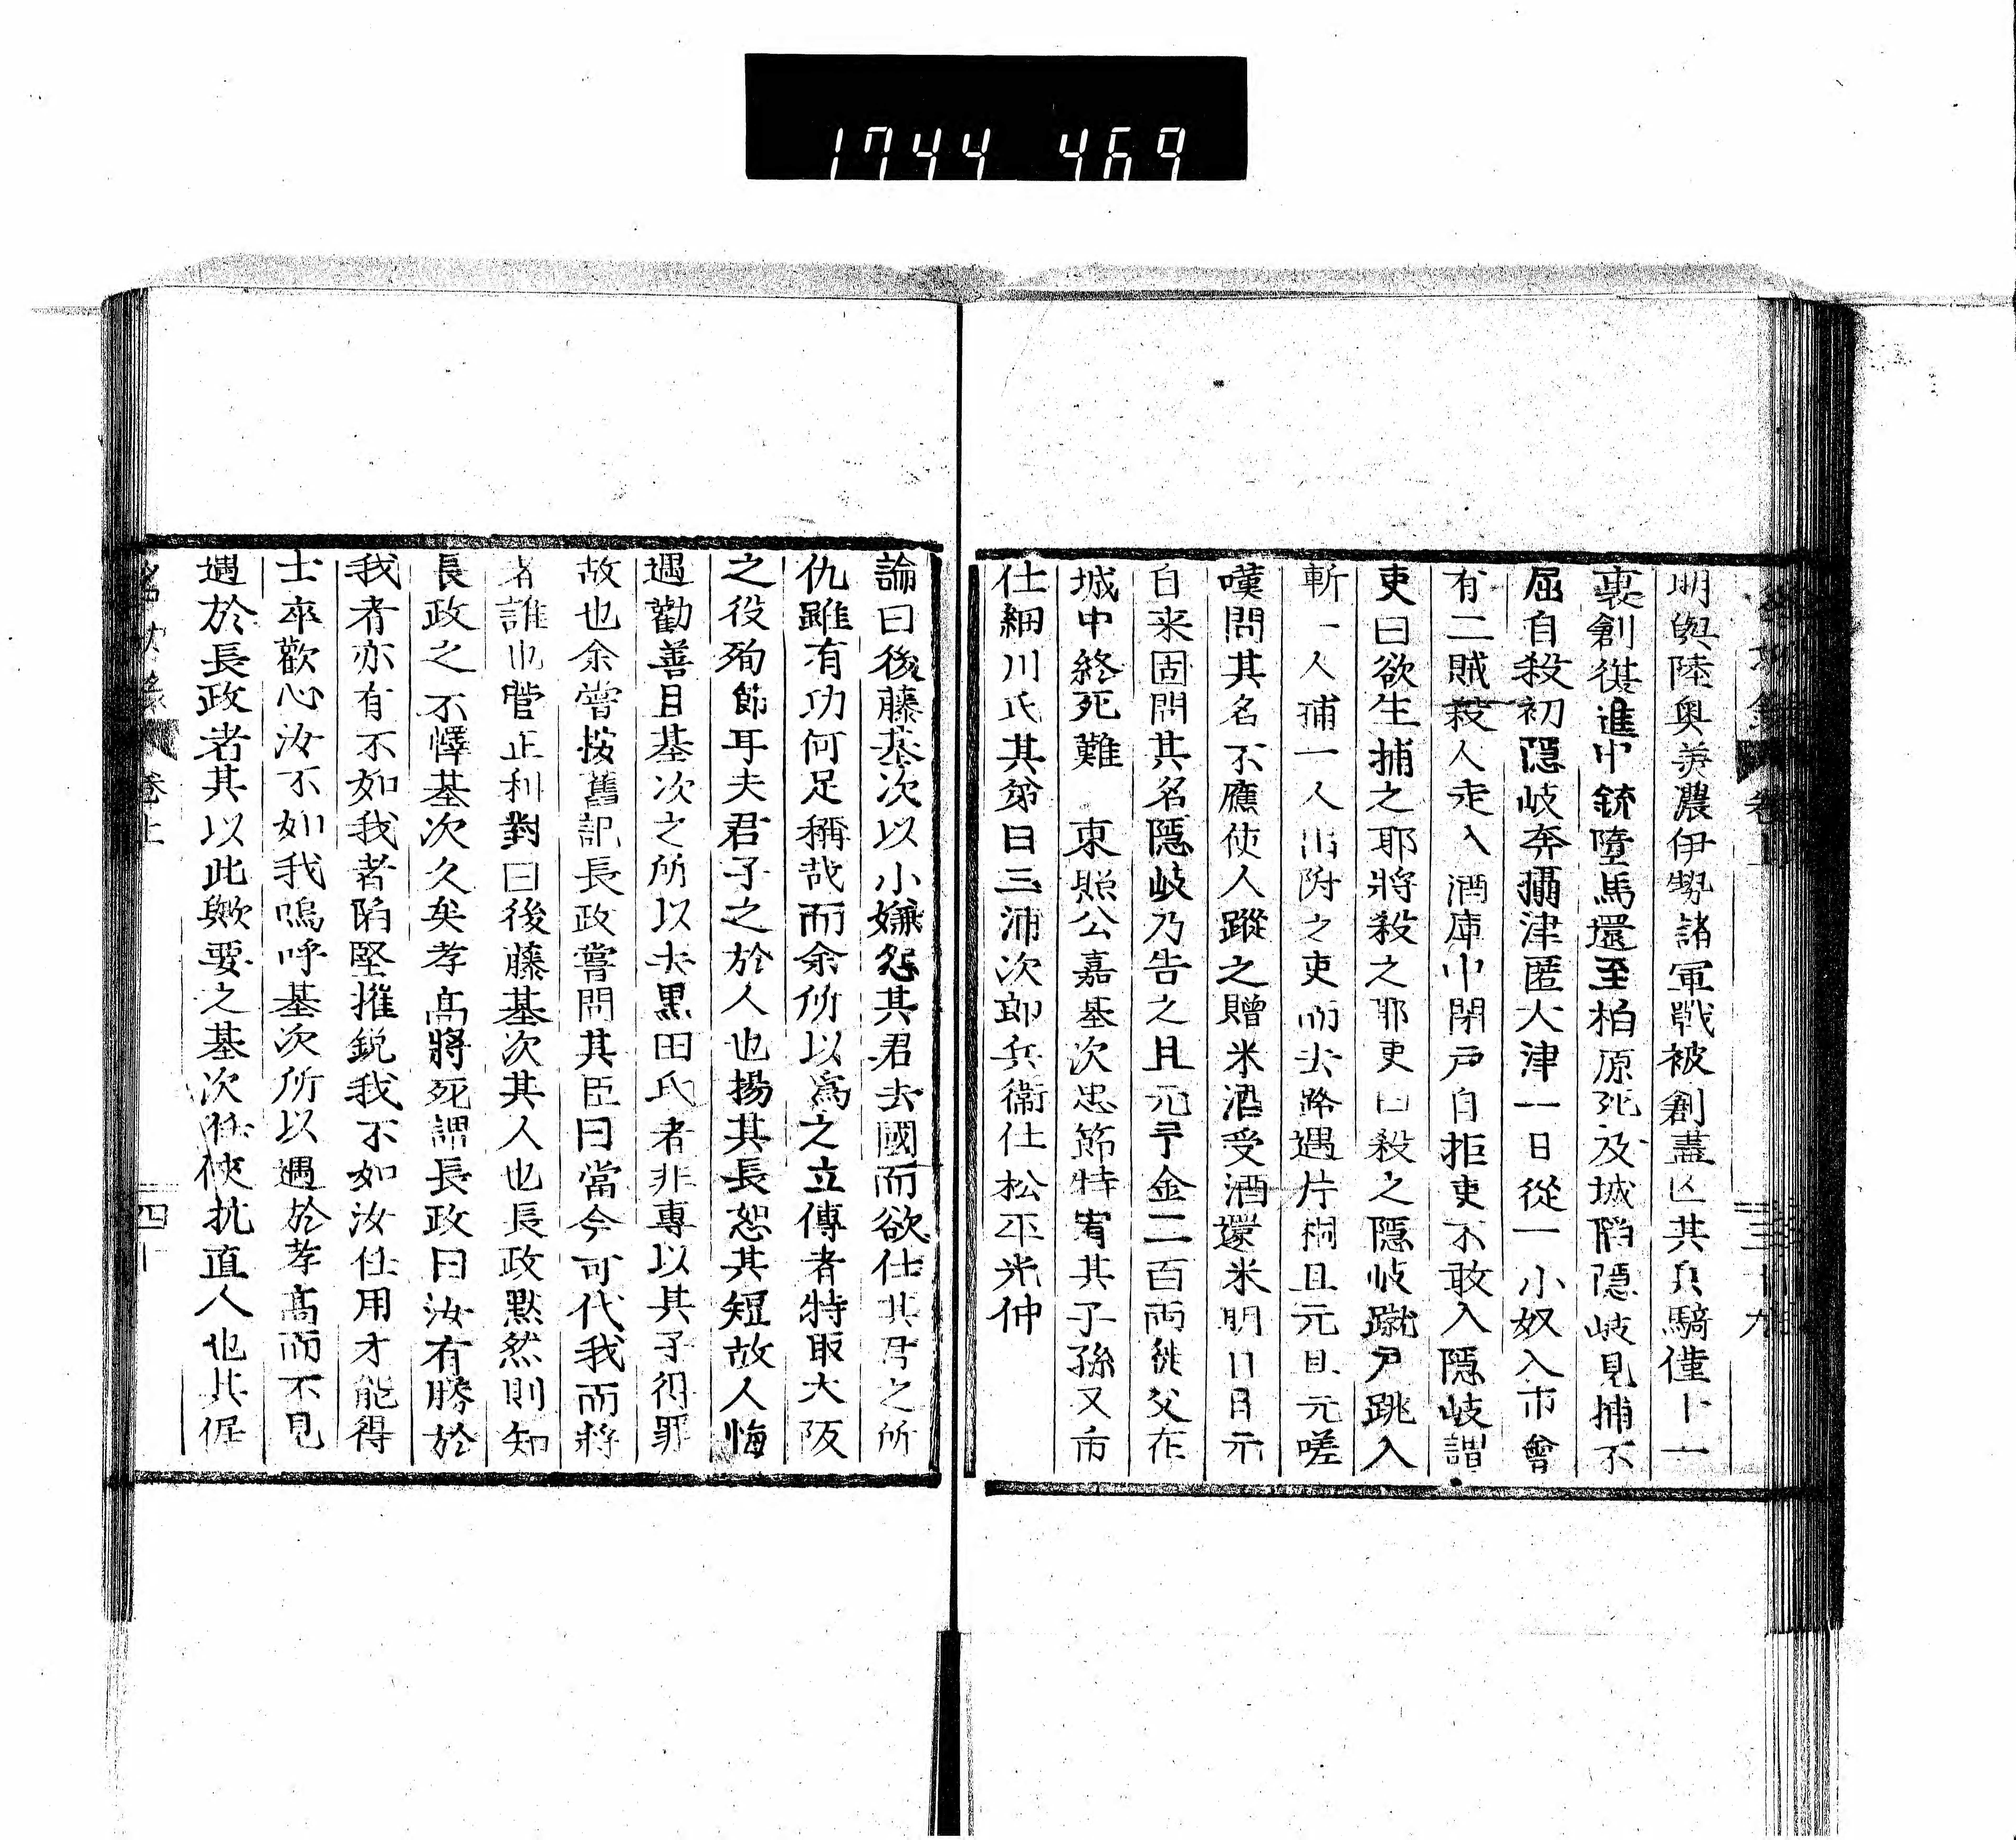 1744 469
明與陸奧美濃伊勢諸軍戰被創盡亡其兵騎僅十一
裹創復進中銃墮馬還至柏原死及城陷隱岐見捕不
屈自殺初隱岐奔攝津匿大津一日從一小奴入市會
有二賊殺人走入酒庫中閉戶自拒吏不敢入隱岐謂
吏曰欲生捕之耶將殺之耶吏曰殺之隱岐蹴戶跳入
斬一人捕一人出附之吏而去路遇片桐且元且元嗟
嘆問其名不應使人蹤之贈米酒受酒還米明日且元
自来固問其名隱岐乃告之且元予金二百両従父在
城中終死難　東照公嘉基次忠節特宥其子孫又市
仕細川氏其弟曰三浦次郎兵衞仕松平光仲
論曰後藤基次以小嫌怨其君去國而欲仕其君之所
仇雖有功何足稱哉而余所以爲之立傳者特取大阪
之役殉節耳夫君子之於人也揚其長恕其短故人悔
過勸善且基次之所以去黒田氏者非專以其子得罪
故也余嘗按舊記長政嘗問其臣曰當今可代我而將
者誰也菅正利對曰後藤基次其人也長政默然則知
長政之不懌基次久矣孝高將死謂長政曰汝有勝於
我者亦有不如我者陷堅摧銳我不如汝任用才能得
士卒歡心汝不如我嗚呼基次所以遇於孝高而不見
遇於長政者其以此歟要之基次任俠抗直人也其倔
卷上
四十